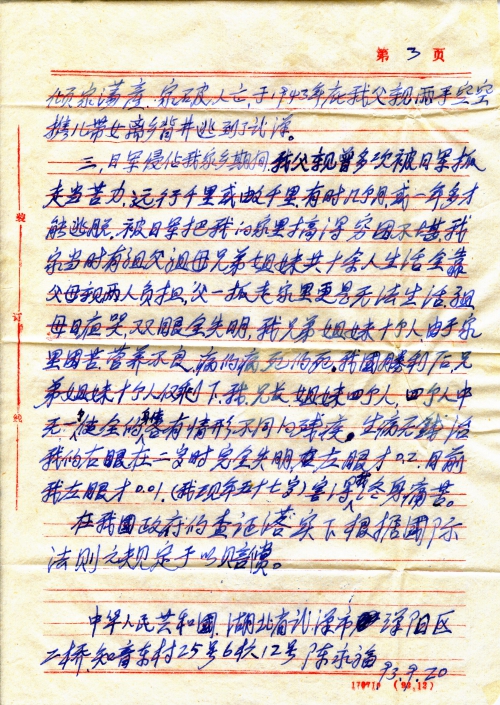 第 3 页
倾家荡產,家破人亡,于1943年底我父親兩手空空
携儿带女离乡背井逃到了武漢。
三,日军侵佔我家乡期间,我父親曾多次被日军抓
走当苦力,远行千里或数千里,有时几个月,或一年多才
能逃脱,被日军把我的家里搞得穷困不堪,我
家当时有祖父祖母兄弟姐妹共十余人生活全靠
父母親两人负担,父一抓走家里更是无法生活,祖
母日夜哭双眼全失明,我兄弟姐妹十个人由于家
里困苦,营养不良,病的病死的死。我國勝利后兄
弟姐妹十个人仅剩下,我,兄长,姐妹四个人,四个人中
无一健全的,都有情形不同的残疾。生病无錢治
我的右眼在二岁时完全失明,左眼才0.2,目前
我左眼才0.01,(我现年五十七岁)害得我终身痛苦。
在我國政府的查证落实下根据國际
法则之规定于以赔償。
中华人民共和国,湖北省武漢市漢阳区
二桥,知音东村25号6栋12号 陈永福
93.9.20
装
订
线
170710 (92.12)